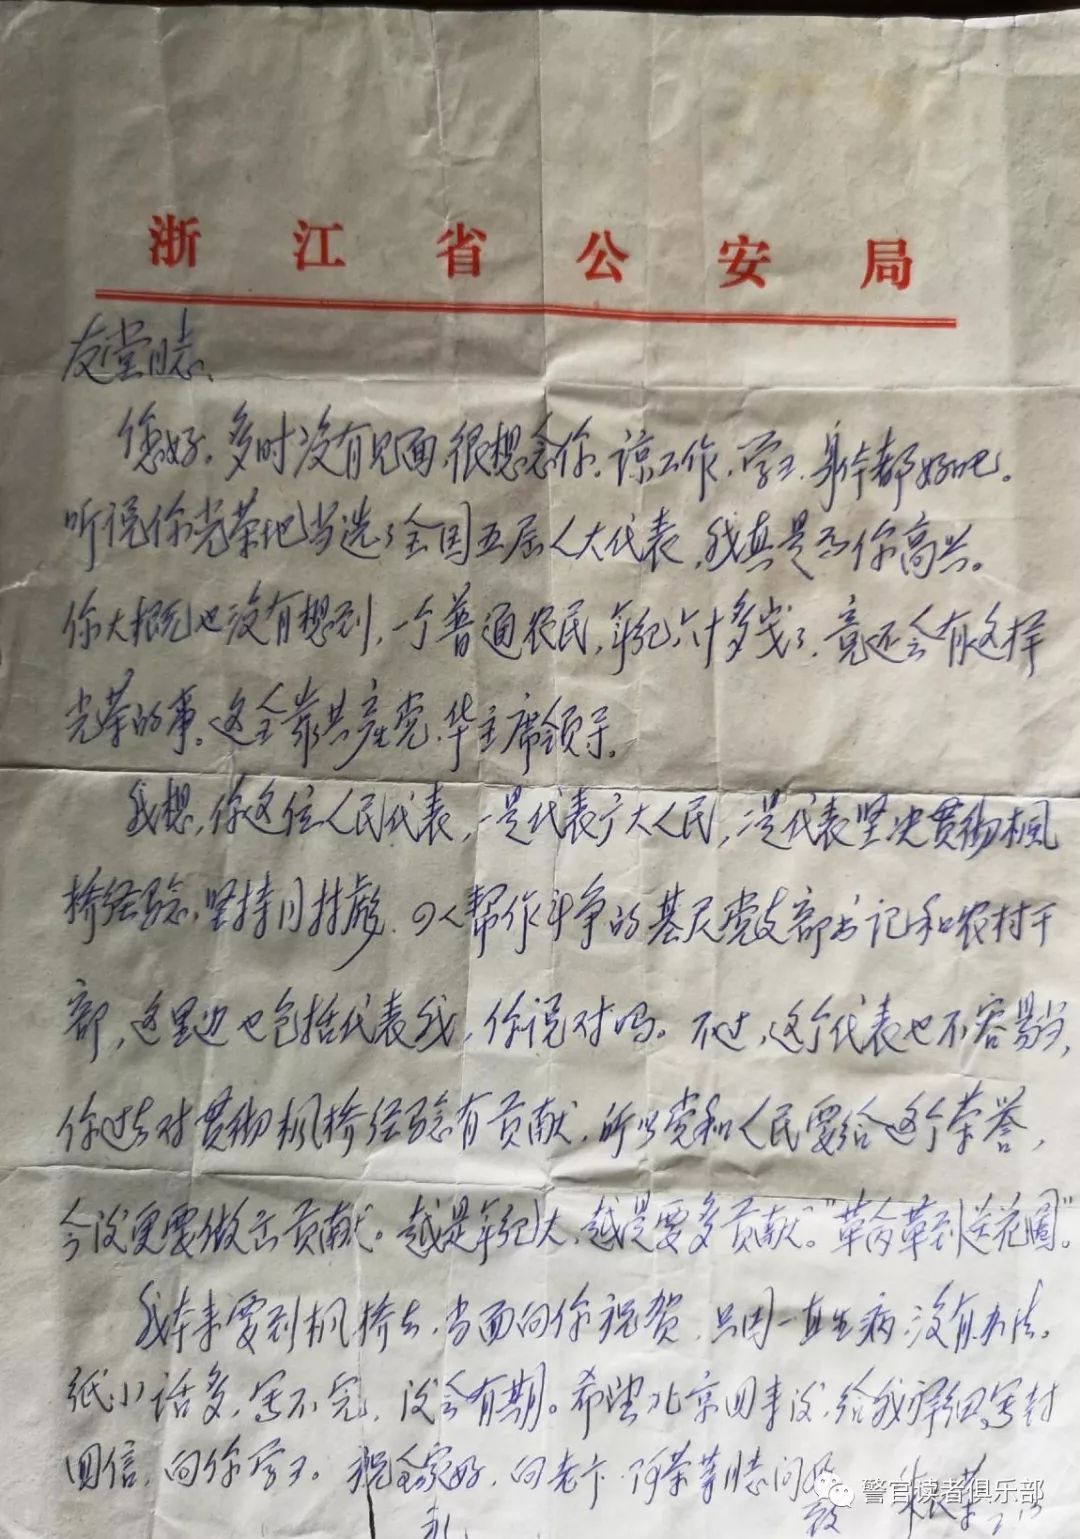 浙江省公安局
友堂同志、
您好。多时没有见面,很想念你。谅工作、学习、身体都好吧。
听说你光荣地当选了全国五届人大代表,我真是为你高兴。
你大概也没有想到,一个普通农民,年纪六十多岁了,竟还会有这样
光荣的事。这全靠共产党、华主席领导。
我想,你这位人民代表,一是代表广大人民,二是代表坚决贯彻枫
桥经验,坚持 帮作斗争的基层党支部书记和农村干
部,这里边也包括代表我,你说对吗。不过,这个代表也不容易当,
你过去对贯彻枫桥经验有贡献,所以党和人民要给这个荣誉,
今后更要做出贡献。越是年纪大,越是要多贡献。"革命革到送花圈"。
我本来要到枫桥去,当面向你祝贺,只因一直生病,没有办法。
纸小话多,写不完,后会有期。希望北京回来后,给我详细写封
回信,向你学习。祝全家好,向老卞、阿荣等同志问好
致
礼
警官读者俱乐部